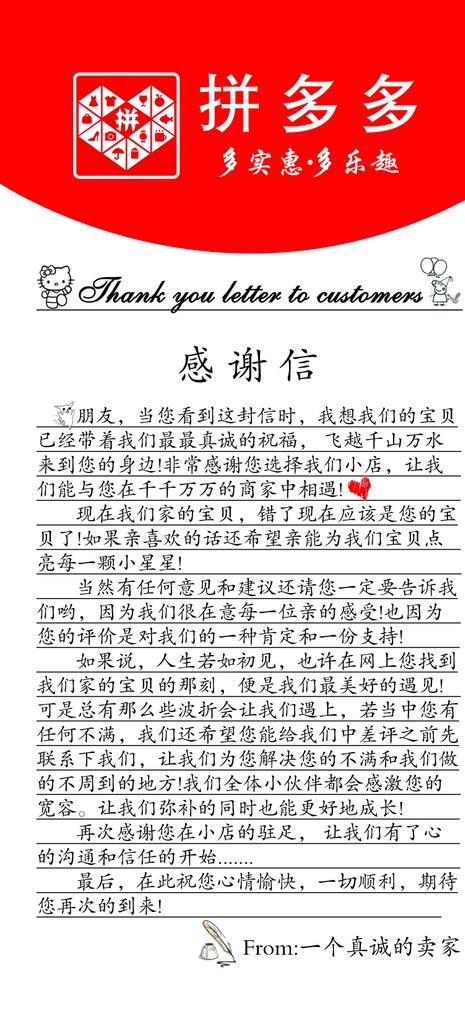 拼
拼多多
多实惠·多乐趣
Thank you letter to customers
感谢信
朋友，当您看到这封信时，我想我们的宝贝
已经带着我们最最真诚的祝福， 飞越千山万水
来到您的身边!非常感谢您选择我们小店，让我
们能与您在千千万万的商家中相遇!
现在我们家的宝贝，错了现在应该是您的宝
贝了!如果亲喜欢的话还希望亲能为我们宝贝点
亮每一颗小星星!
当然有任何意见和建议还请您一定要告诉我
们哟，因为我们很在意每一位亲的感受!也因为
您的评价是对我们的一种肯定和一份支持!
如果说，人生若如初见，也许在网上您找到
我们家的宝贝的那刻，便是我们最美好的遇见!
可是总有那么些波折会让我们遇上，若当中您有
任何不满，我们还希望您能给我们中差评之前先
联系下我们，让我们为您解决您的不满和我们做
的不周到的地方!我们全体小伙伴都会感激您的
宽容。让我们弥补的同时也能更好地成长!
再次感谢您在小店的驻足， 让我们有了心
的沟通和信任的开始.......
最后，在此祝您心情愉快，一切顺利，期待
您再次的到来!
From:一个真诚的卖家